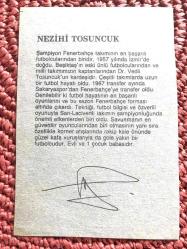 NEZİHİ TOSUNCUK
Şampiyon Fenerbahçe takımının en başarılı
futbolcularından biridir, 1957 yılında İzmir'de
doğdu. Beşiktaş'ın eski ünlü futbolcularından ve
milli takımımızın kaptanlarından Dr. Vedii
Tosuncuk'un kardeşidir. Çeşitli takımlarda uzun
bir futbol hayatı oldu. 1987 transfer ayında
Sakaryaspor'dan Fenerbahçe'ye transfer oldu.
Denilebilir ki futbol hayatının en başarılı
oyunlarını ve bu sezon Fenerbahçe forması
altında çıkardı. Tekniği, futbol bilgisi ve özverili
oyunuyla Sarı-Lacivertli takımın şampiyonluğunda
önemli etkenlerden biri oldu. Savunmanın en
güvenilir oyuncularından biri olmasının yanı sıra
özellikle korner atışlarında rakip kale önünde
güzel kafa vuruşlarıyla da gole yakın bir
futbolcudur. Evli ve 1 çocuk babasıdır.